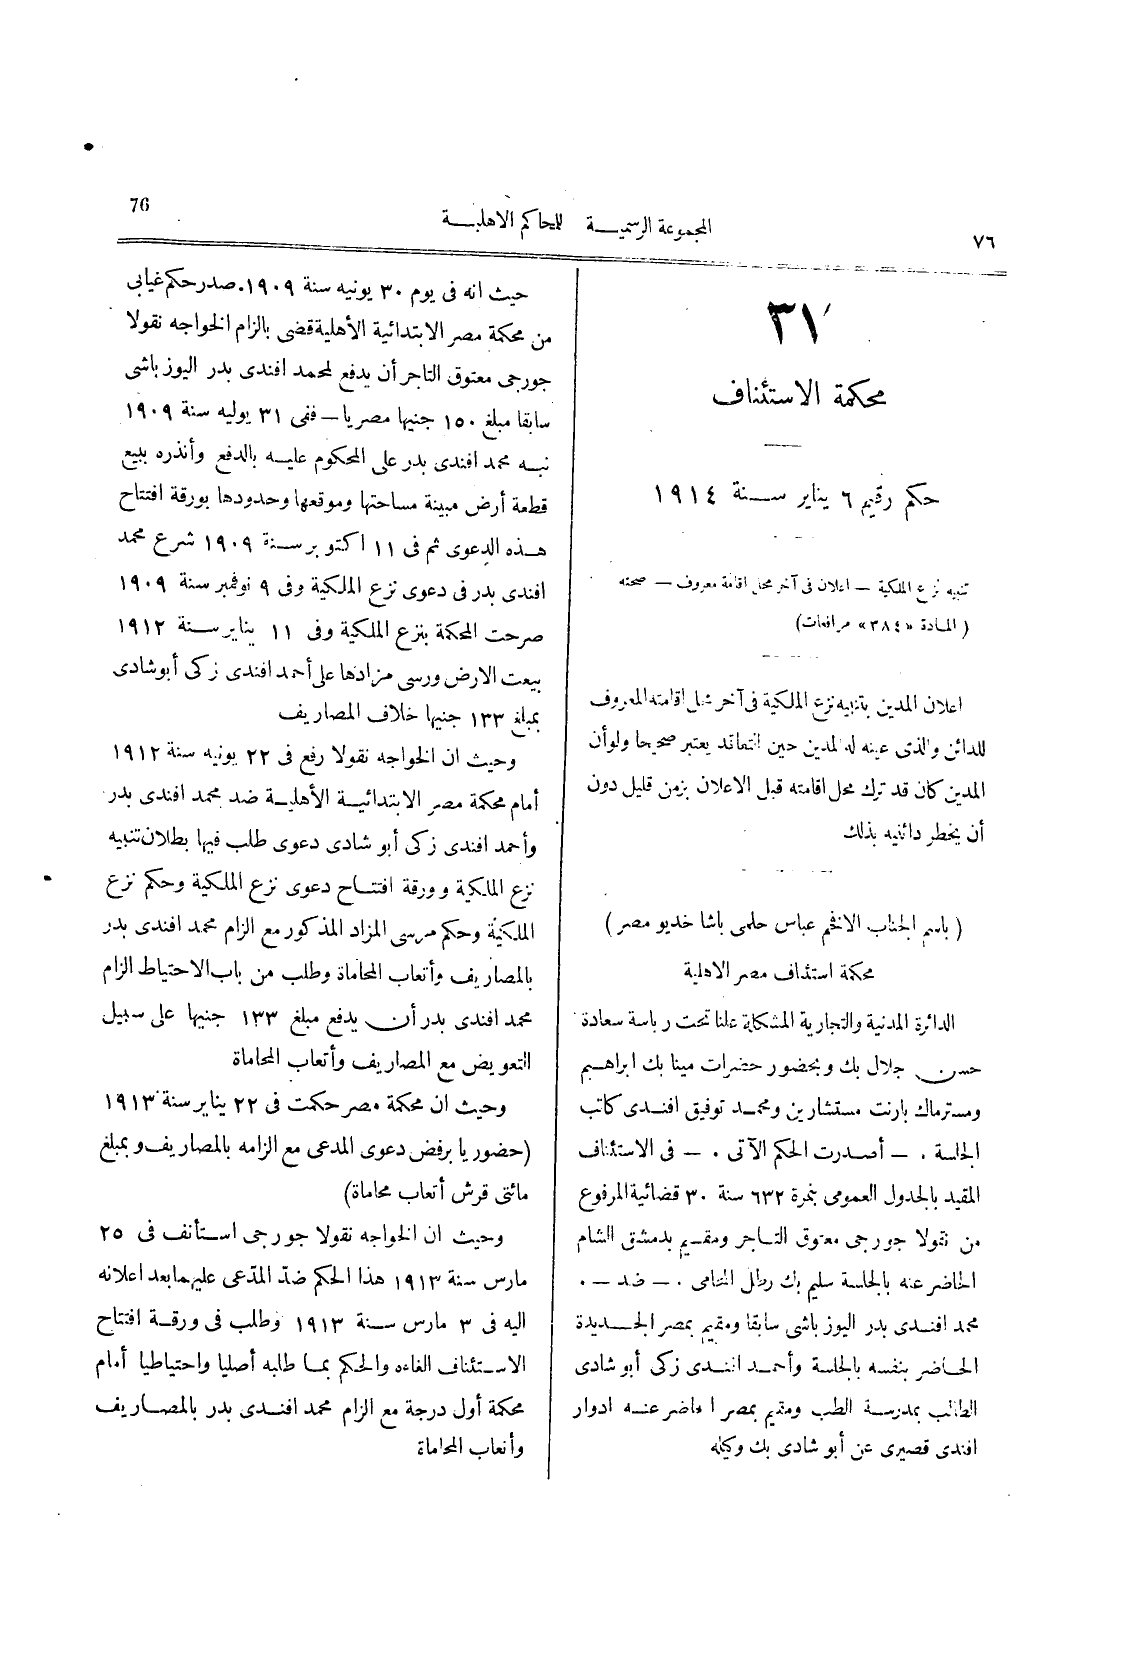 76
المجموعة الرسمية للمحاكم الاهلية
٧٦
٣١
محكمة الاستئناف
حكم رقيم ٦ يناير سنة ١٩١٤
تنبيه نزع الملكية — اعلان فى آخر محل اقامة معروف — صحته
(المادة «٣٨٤» مرافعات)
اعلان المدين بتنبيه نزع الملكية فى آخر محل اقامته المعروف
للدائن والذى عينه له المدين حين التعاقد يعتبر صحيحا ولو أن
المدين كان قد ترك محل اقامته قبل الاعلان بزمن قليل دون
أن يخطر دائنيه بذلك
(باسم الجناب الافخم عباس حلمى باشا خديو مصر)
محكمة استئناف مصر الاهلية
الدائرة المدنية والتجارية المشكلة علنا تحت رياسة سعادة
حسن جلال بك وبحضور حضرات مينا بك ابراهيم
ومستر مالك بارنت مستشارين ومحمد توفيق افندى كاتب
الجلسة . — أصدرت الحكم الآتى . — فى الاستئناف
المقيد بالجدول العمومى بنمرة ٦٣٢ سنة ٣٠ قضائية المرفوع
من نقولا جورجى معتوق التاجر ومقيم بدمشق الشام
الحاضر عنه بالجلسة سليم بك رطل المحامى . — ضد — .
محمد افندى بدر اليوزباشى سابقا ومقيم بمصر الجديدة
الحاضر بنفسه بالجلسة وأحمد افندى زكى أبو شادى
الطالب بمدرسة الطب ومقيم بمصر الحاضر عنه ادوار
افندى قصيرى عن أبو شادى بك وكيله
حيث انه فى يوم ٣٠ يونيه سنة ١٩٠٩ صدر حكم غيابى
من محكمة مصر الابتدائية الأهلية قضى بالزام الخواجه نقولا
جورجى معتوق التاجر أن يدفع لمحمد افندى بدر اليوزباشى
سابقا مبلغ ١٥٠ جنيها مصريا — ففى ٣١ يوليه سنة ١٩٠٩
نبه محمد افندى بدر على المحكوم عليه بالدفع وأنذره ببيع
قطعة أرض مبينة مساحتها وموقعها وحدودها بورقة افتتاح
هذه الدعوى ثم فى ١١ اكتوبر سنة ١٩٠٩ شرع محمد
افندى بدر فى دعوى نزع الملكية وفى ٩ نوفمبر سنة ١٩٠٩
صرحت المحكمة بنزع الملكية وفى ١١ يناير سنة ١٩١٢
بيعت الارض ورسى مزادها على أحمد افندى زكى أبو شادى
بمبلغ ١٣٣ جنيها خلاف المصاريف
وحيث ان الخواجه نقولا رفع فى ٢٢ يونيه سنة ١٩١٢
أمام محكمة مصر الابتدائية الأهلية ضد محمد افندى بدر
وأحمد افندى زكى أبو شادى دعوى طلب فيها بطلان تنبيه
نزع الملكية وورقة افتتاح دعوى نزع الملكية وحكم نزع
الملكية وحكم مرسى المزاد المذكور مع الزام محمد افندى بدر
بالمصاريف وأتعاب المحاماة وطلب من باب الاحتياط الزام
محمد افندى بدر أن يدفع مبلغ ١٣٣ جنيها على سبيل
التعويض مع المصاريف وأتعاب المحاماة
وحيث ان محكمة مصر حكمت فى ٢٢ يناير سنة ١٩١٣
(حضوريا برفض دعوى المدعى مع الزامه بالمصاريف وبمبلغ
مائتى قرش أتعاب محاماة)
وحيث ان الخواجه نقولا جورجى استأنف فى ٢٥
مارس سنة ١٩١٣ هذا الحكم ضد المدّعى عليهما بعد اعلانه
اليه فى ٣ مارس سنة ١٩١٣ وطلب فى ورقة افتتاح
الاستئناف الغاءه والحكم بما طلبه أصليا واحتياطيا أمام
محكمة أول درجة مع الزام محمد افندى بدر بالمصاريف
وأتعاب المحاماة